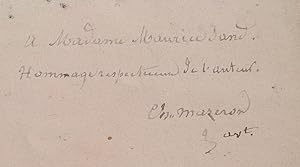 A Madame Maurice Sand.
Hommage respectueux de l'auteur.
Ch. Mazeron